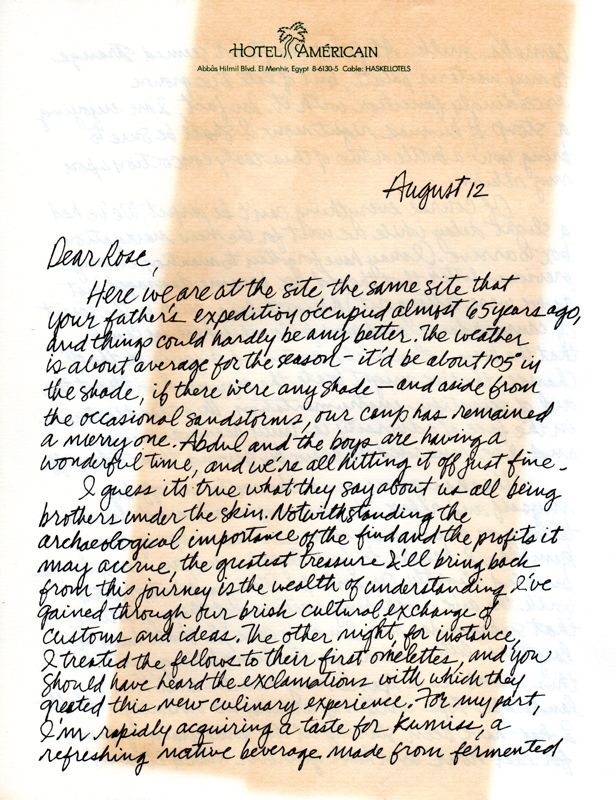 HOTEL AMÉRICAIN
Abbâs Hilmil Blvd. El Menhir, Egypt 8-6130-5 Cable: HASKELLOTELS
August 12
Dear Rose,
Here we are at the site, the same site that
your father's expedition occupied almost 65 years ago,
and things could hardly be any better. The weather
is about average for the season – it'd be about 105° in
the shade, if there were any shade – and aside from
the occasional sandstorms, our camp has remained
a merry one. Abdul and the boys are having a
wonderful time, and we're all hitting it off just fine.
I guess it's true what they say about us all being
brothers under the skin. Notwithstanding the
archaeological importance of the find and the profits it
may accrue, the greatest treasure I'll bring back
from this journey is the wealth of understanding I've
gained through our brisk cultural exchange of
customs and ideas. The other night, for instance,
I treated the fellows to their first omelettes, and you
should have heard the exclamations with which they
greated this new culinary experience. For my part,
I'm rapidly acquiring a taste for Kumiss, a
refreshing native beverage made from fermented